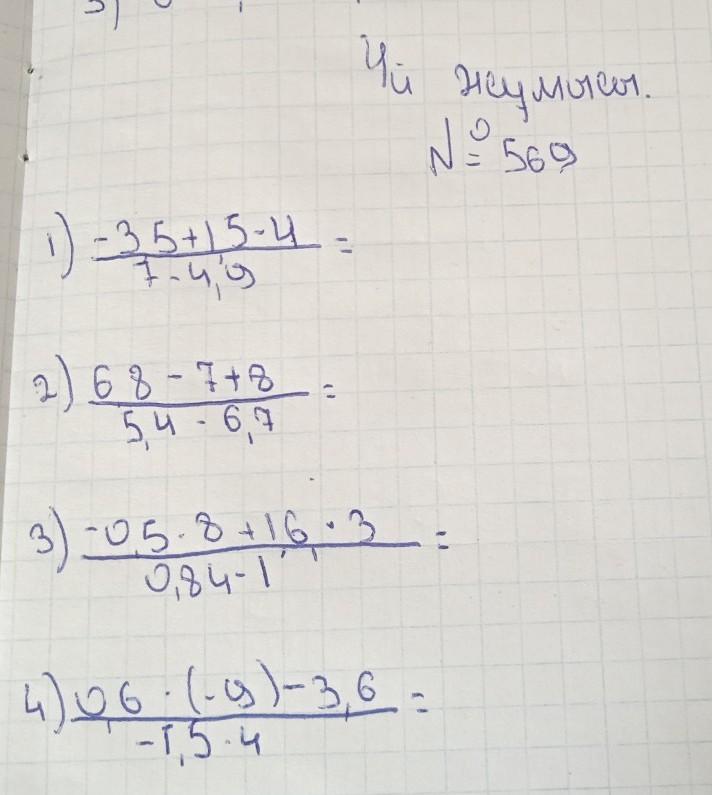 5)
Үй жумысы.
№ 569
1) -3,5+1,5-4 / 7-4,9 =
2) 6,8-7+8 / 5,4-6,7 =
3) -0,5·8+1,6·3 / 0,84-1 =
4) 0,6·(-9)-3,6 / -1,5·4 =